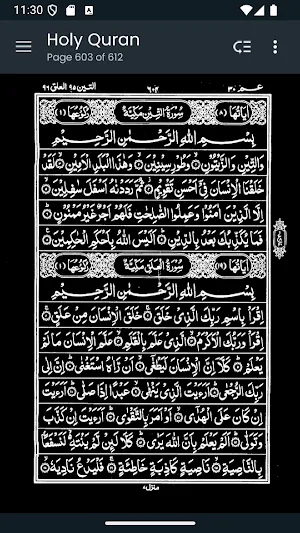 11:30
Holy Quran
Page 603 of 612
التين ٩٥ العلق ٩٦
٦٠٢
عم ٣٠
اٰيَاتُهَا (٨) سُوْرَةُ التِّيْنِ مَكِّيَّةٌ رُكُوْعُهَا (١)
بِسْمِ اللّٰهِ الرَّحْمٰنِ الرَّحِيْمِ
وَالتِّيْنِ وَالزَّيْتُوْنِ ۝ وَطُوْرِ سِيْنِيْنَ ۝ وَهٰذَا الْبَلَدِ الْاَمِيْنِ ۝ لَقَدْ
خَلَقْنَا الْاِنْسَانَ فِيْٓ اَحْسَنِ تَقْوِيْمٍ ۝ ثُمَّ رَدَدْنٰهُ اَسْفَلَ سٰفِلِيْنَ ۝
اِلَّا الَّذِيْنَ اٰمَنُوْا وَعَمِلُوا الصّٰلِحٰتِ فَلَهُمْ اَجْرٌ غَيْرُ مَمْنُوْنٍ ۝
فَمَا يُكَذِّبُكَ بَعْدُ بِالدِّيْنِ ۝ اَلَيْسَ اللّٰهُ بِاَحْكَمِ الْحٰكِمِيْنَ ۝
اٰيَاتُهَا (١٩) سُوْرَةُ الْعَلَقِ مَكِّيَّةٌ رُكُوْعُهَا (١)
بِسْمِ اللّٰهِ الرَّحْمٰنِ الرَّحِيْمِ
اِقْرَاْ بِاسْمِ رَبِّكَ الَّذِيْ خَلَقَ ۝ خَلَقَ الْاِنْسَانَ مِنْ عَلَقٍ ۝
اِقْرَاْ وَرَبُّكَ الْاَكْرَمُ ۝ الَّذِيْ عَلَّمَ بِالْقَلَمِ ۝ عَلَّمَ الْاِنْسَانَ مَا لَمْ
يَعْلَمْ ۝ كَلَّآ اِنَّ الْاِنْسَانَ لَيَطْغٰٓى ۝ اَنْ رَّاٰهُ اسْتَغْنٰى ۝ اِنَّ اِلٰى
رَبِّكَ الرُّجْعٰى ۝ اَرَءَيْتَ الَّذِيْ يَنْهٰى ۝ عَبْدًا اِذَا صَلّٰى ۝ اَرَءَيْتَ
اِنْ كَانَ عَلَى الْهُدٰٓى ۝ اَوْ اَمَرَ بِالتَّقْوٰى ۝ اَرَءَيْتَ اِنْ كَذَّبَ
وَتَوَلّٰى ۝ اَلَمْ يَعْلَمْ بِاَنَّ اللّٰهَ يَرٰى ۝ كَلَّا لَئِنْ لَّمْ يَنْتَهِ لَنَسْفَعًا
بِالنَّاصِيَةِ ۝ نَاصِيَةٍ كَاذِبَةٍ خَاطِئَةٍ ۝ فَلْيَدْعُ نَادِيَهٗ ۝